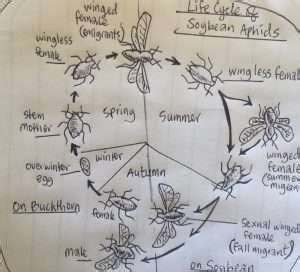 Life Cycle of
Soybean Aphids
winged
female
(emigrants)
wingless
female
wingless female
spring
Summer
stem
mother
winged
female
(summer
winter
overwinter
egg
Autumn
on Buckthorn
female
male
Sexual winged
female
(Fall migrant)
on Soybean